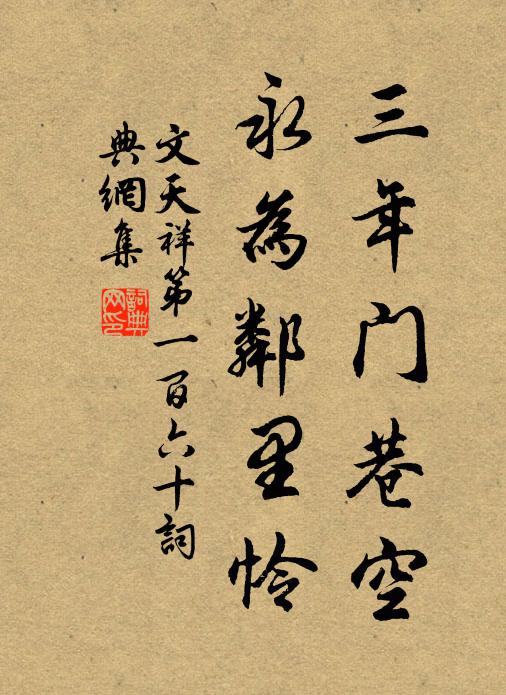 三年门巷空
永為鄰里怜
文天祥第一百六十詞
典網集
詞典网印